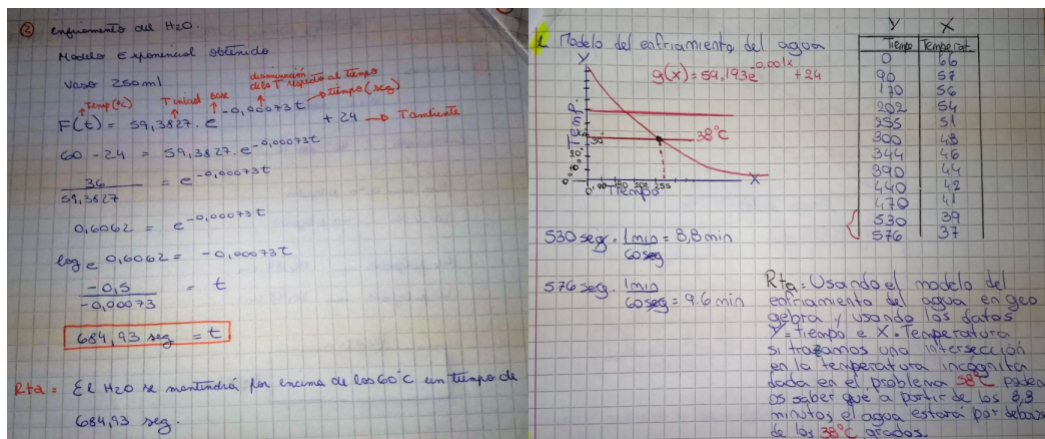 ② enfriamento del H2O.
Modelo Exponencial obtenido
Vaso 250ml
disminución
de la T respecto al tiempo
Temp (°C)
T inicial
base
tiempo (seg)
F(t) = 59,3827 . e^-0,00073t + 24 → T ambiente
60 - 24 = 59,3827 . e^-0,00073t
36 / 59,3827 = e^-0,00073t
0,6062 = e^-0,00073t
log e 0,6062 = -0,00073t
-0,5 / -0,00073 = t
684,93 seg = t
Rta = El H2O se mantendrá por encima de los 60°C un tiempo de
684,93 seg.
Modelo del enfriamiento del agua
Y
g(x) = 59,193e^-0,001x + 24
Temp.
38°C
30
20
255
X
Tiempo
530 seg . 1min / 60seg = 8,8 min
576 seg . 1min / 60seg = 9.6 min
Y X
Tiempo Temperat.
0 66
90 57
170 56
202 54
255 51
300 48
344 46
390 44
440 42
470 41
530 39
576 37
Rta = Usando el modelo del
enfriamiento del agua en geo
gebra y usando los datos
Y = Tiempo e X = Temperatura
si trazamos una intersección
en la temperatura incognita
dada en el problema 38°C podem
os saber que a partir de los 8,8
minutos el agua estará por debajo
de los 38°C grados.